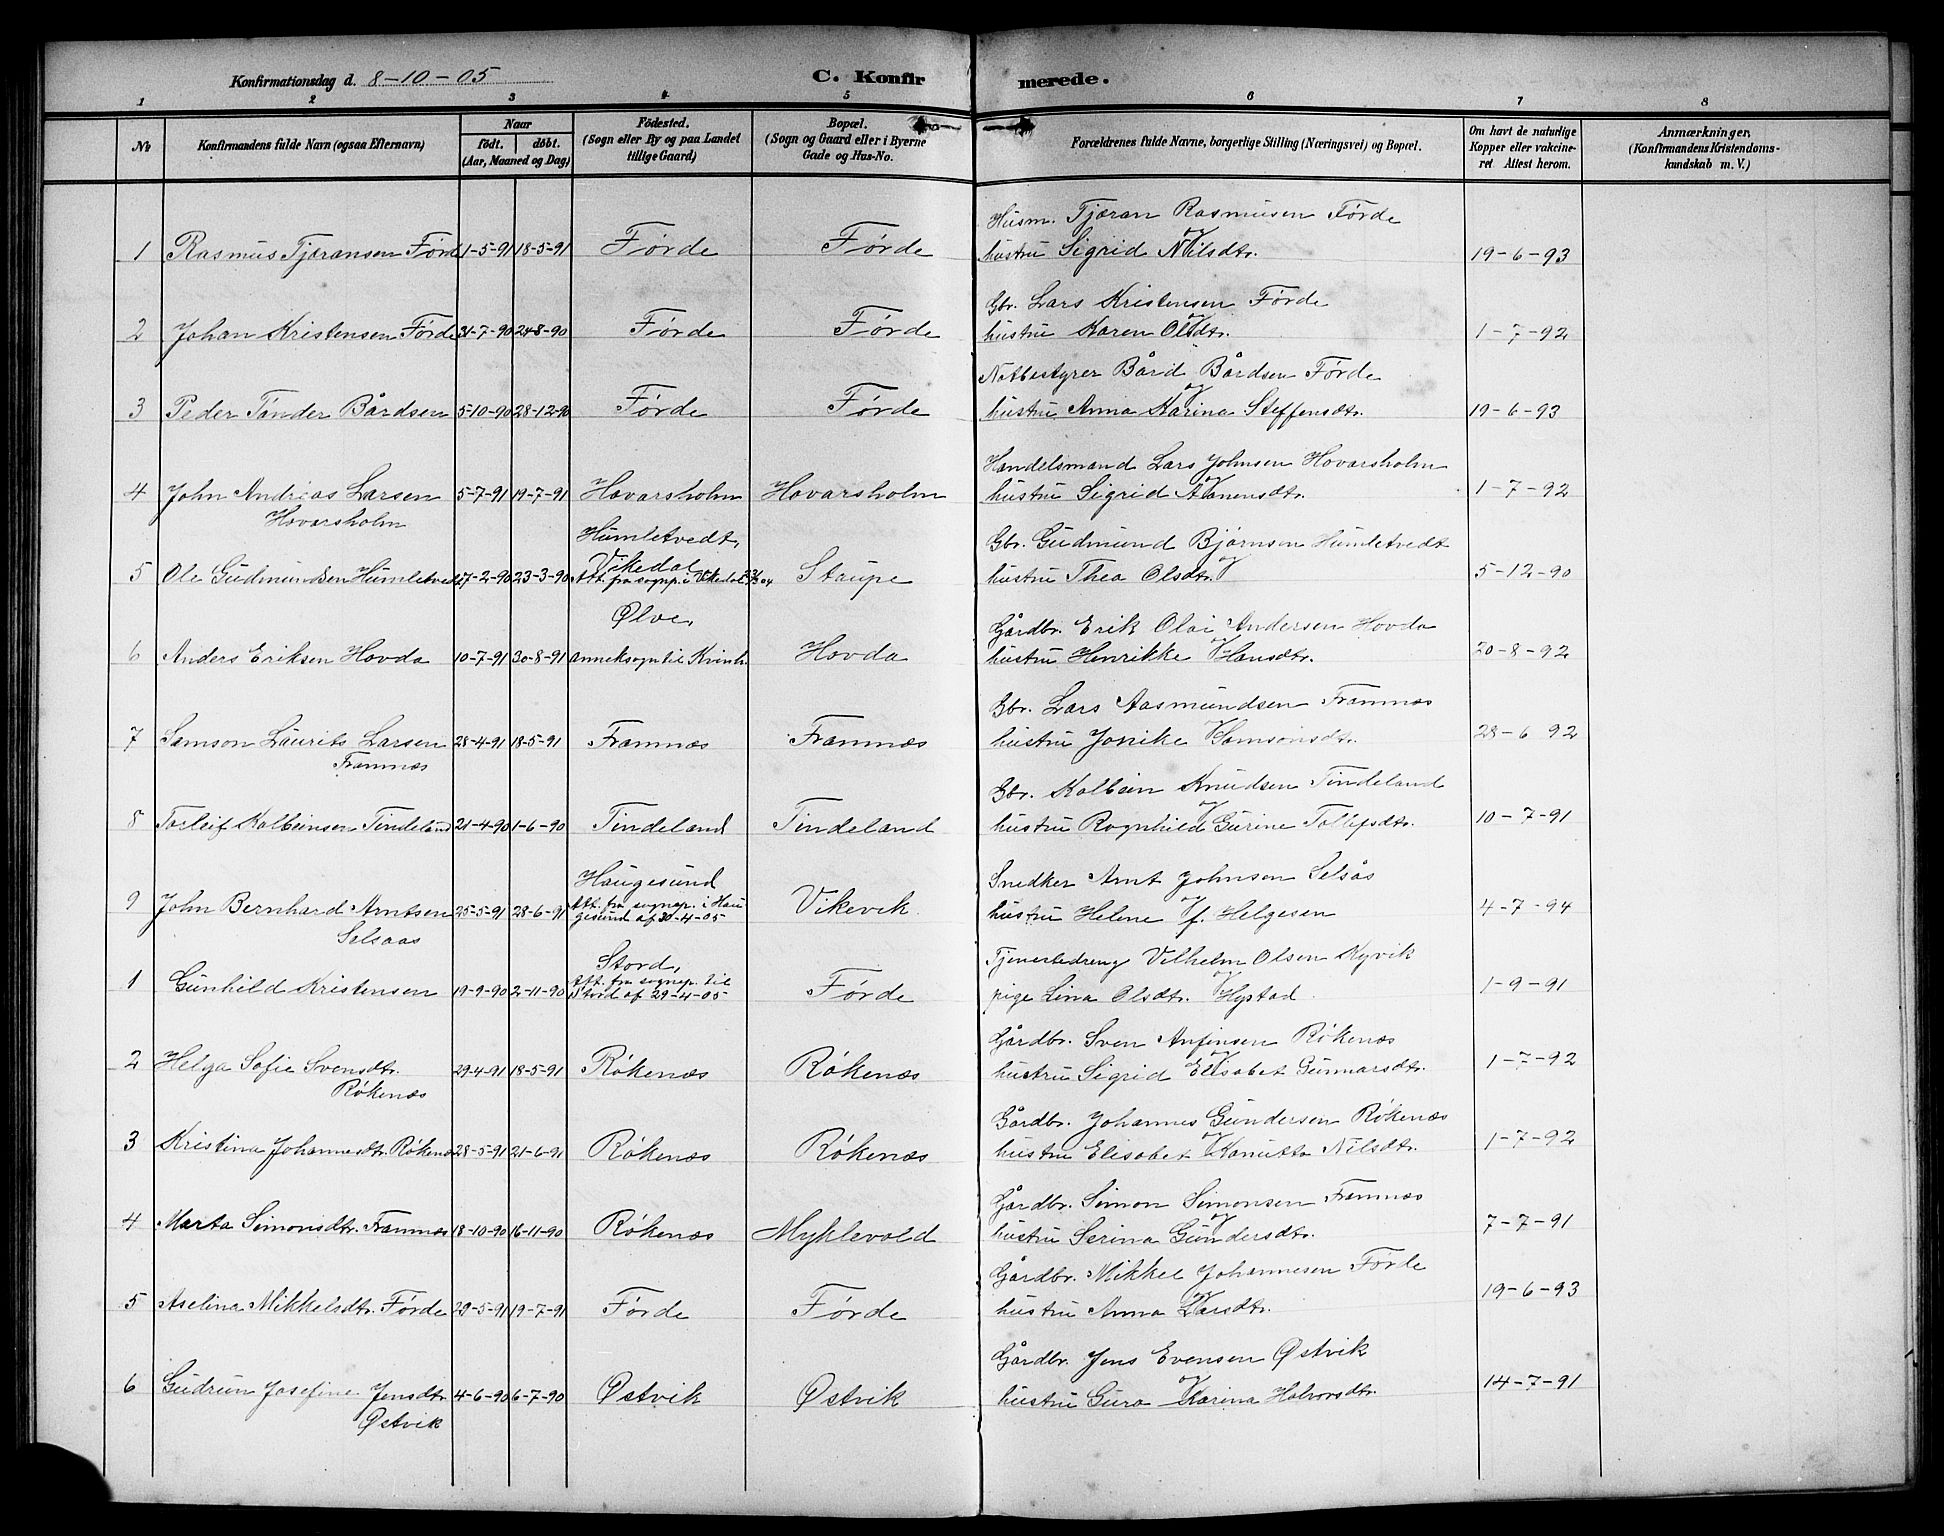 Konfirmationsdag d. 8-10-05 C. Konfir merede.
1 2 3 4 5 6 7 8
No Konfirmandens fulde Navn (ogsaa Efternavn) Naar födt. döbt. (Aar, Maaned og Dag) Födested. (Sogn eller By og paa Landet tillige Gaard) Bopæl. (Sogn og Gaard eller i Byerne Gade og Hus-No. Forældrenes fulde Navne, borgerlige Stilling (Næringsvei) og Bopæl. Om havt de naturlige Kopper eller vakcineret Attest herom. Anmærkninger, (Konfirmandens Kristendomskundskab m. V.)
Husm. Tjæran Rasmusen Førde og
1 Rasmus Tjæransen Førde 1-5-91 18-5-91 Førde Førde hustru Sigrid Nilsdtr. 19-6-93
Gbr. Lars Kristensen Førde og
2 Johan Kristensen Førde 31-7-90 24-8-90 Førde Førde hustru Karen Olsdtr. 1-7-92
Notbestyrer Bård Bårdsen Førde og
3 Peder Tönder Bårdsen 5-10-90 28-12-90 Førde Førde hustru Anna Karina Steffensdtr. 19-6-93
Handelsmand Lars Johnsen Hovarsholm og
4 John Andreas Larsen 5-7-91 19-7-91 Hovarsholm Hovarsholm hustru Sigrid Aanensdtr. 1-7-92
Hovarsholm
Humletvedt, Gbr. Gudmund Bjørnsen Humletvedt og
Vikedal
5 Ole Gudmundsen Humletvedt 17-2-90 23-3-90 Att. fra sognep. i Vikedal Staupe hustru Thea Olsdtr. 5-12-90
Ølve, Gårdbr. Erik Olai Andersen Hovda og
6 Anders Eriksen Hovda 10-7-91 30-8-91 Annekssogn til Kvinh. Hovda hustru Henrikke Hansdtr. 20-8-92
Gbr. Lars Aasmundsen Framnæs og
7 Samson Laurits Larsen 28-4-91 18-5-91 Framnæs Framnæs hustru Jonike Samsonsdtr. 28-6 92
Framnæs
Gbr. Kolbein Knudsen Tindeland og
8 Torleif Kolbeinsen Tindeland 21-4-90 1-6-90 Tindeland Tindeland hustru Rognhild Gurine Tollefsdtr. 10-7-91
Haugesund Snedker Arnt Johnsen Selsås og
9 John Bernhard Arntsen 25-5-91 28-6-91 Att. fra sognep. i Hau Vikevik hustru Helene f. Helgesen 4-7-94
gesund af 30-4-05
Selsaas
Stord, Tjenestedreng Vilhelm Olsen Kyvik og
1 Gunhild Kristensen 19-9-90 2-11-90 Att. fra sognep. til Førde pige Lina Olsdtr. Hystad 1-9-91
Stord af 29-4-05
Gårdbr. Sven Anfinsen Rökenæs og
2 Helga Sofie Svensdtr. 29-4-91 18-5-91 Rökenæs Rökenæs hustru Sigrid Elisabet Gunnarsdtr. 1-7-92
Rökenæs
Gårdbr. Johannes Gundersen Rökenæs og
3 Kristina Johannesdtr. Rökenæs 28-5-91 21-6-91 Rökenæs Rökenæs hustru Elisabet Nilsdtr. 1-7-92
Gårdbr. Simon Simonsen Framnæs og
4 Marta Simonsdtr. Framnæs 18-10-90 16-11-90 Rökenæs Myklevold hustru Serina Gundersdtr. 7-7-91
Gårdbr. Mikkel Johannesen Førde og
5 Aselina Mikkelsdtr. Førde 29-5-91 19-7-91 Førde Førde hustru Anna Larsdtr. 19-6-93
Gårdbr. Jens Evensen Østvik og
6 Gudrun Josefine Jensdtr. 4-6-90 6-7-90 Østvik Østvik hustru Guro Karina Halvorsdtr. 14-7-91
Østvik